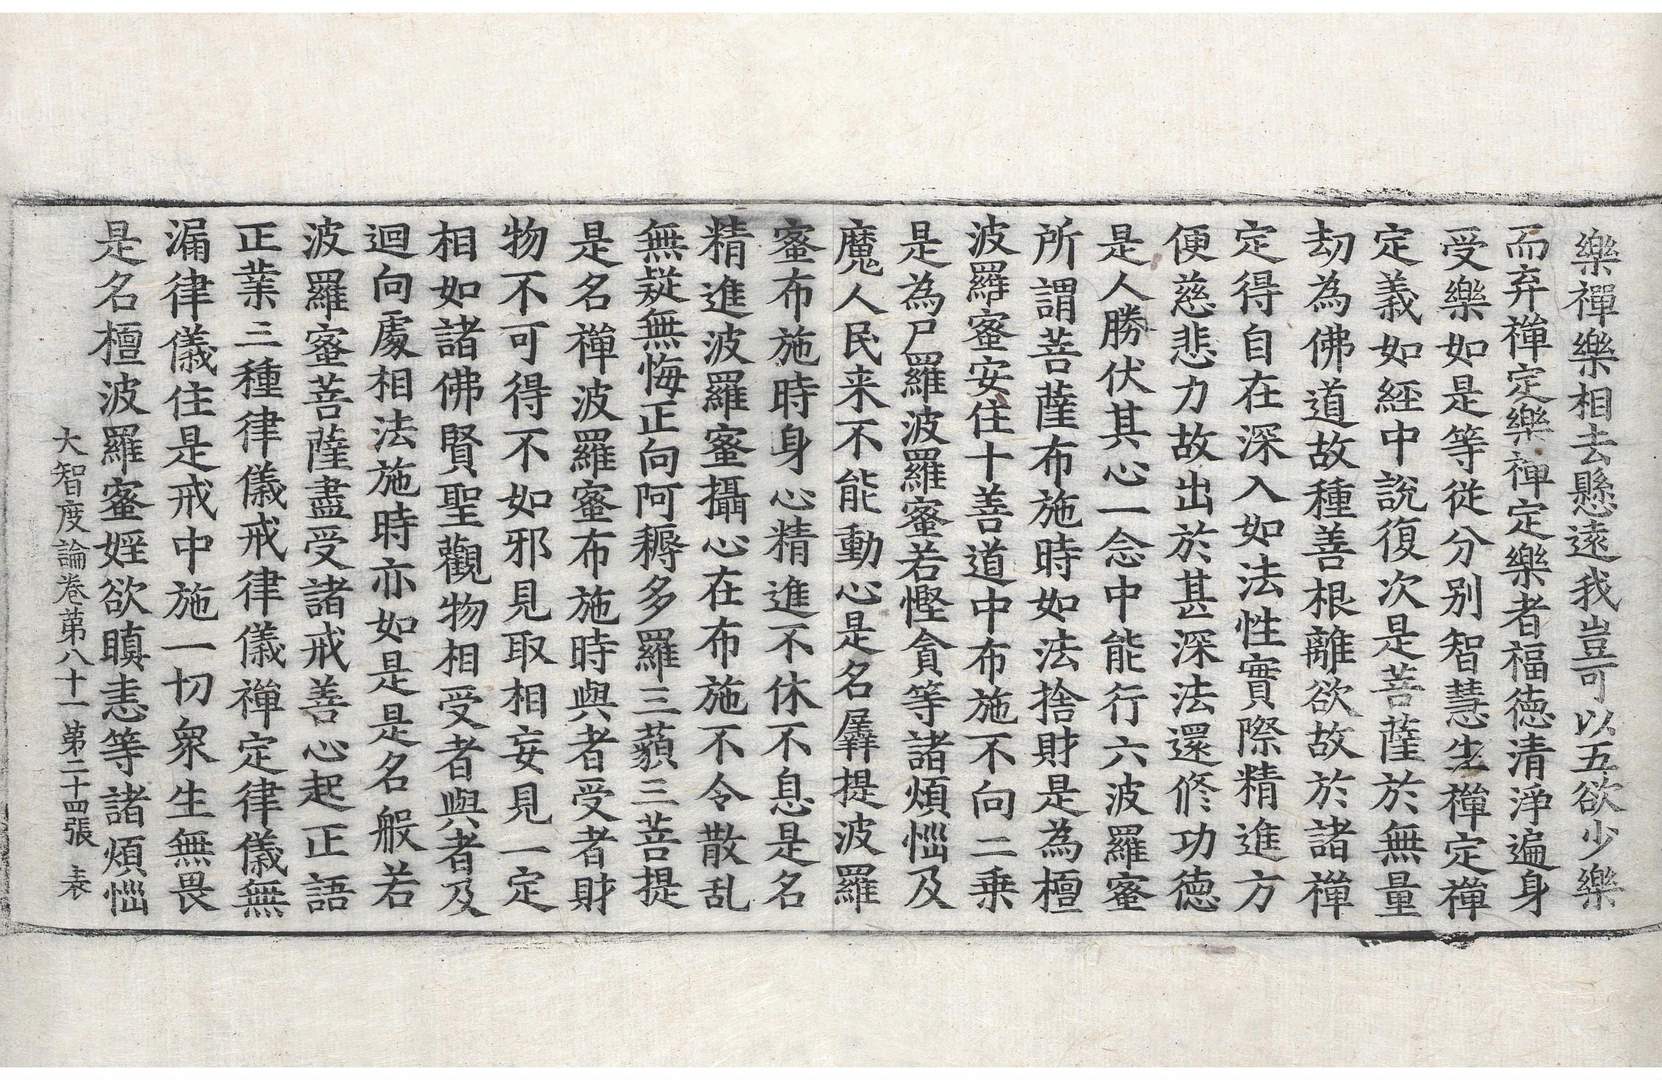 樂禪樂相去懸遠我豈可以五欲少樂
而弃禪定樂禪定樂者福德清淨遍身
受樂如是等從分別智慧生禪定禪
定義如經中說復次是菩薩於無量
劫為佛道故種善根離欲故於諸禪
定得自在深入如法性實際精進方
便慈悲力故出於甚深法還修功德
是人勝伏其心一念中能行六波羅蜜
所謂菩薩布施時如法捨財是為檀
波羅蜜安住十善道中布施不向二乗
是為尸羅波羅蜜若慳貪等諸煩惱及
魔人民来不能動心是名羼提波羅
蜜布施時身心精進不休不息是名
精進波羅蜜攝心在布施不令散乱
無疑無悔正向阿耨多羅三藐三菩提
是名禪波羅蜜布施時與者受者財
物不可得不如邪見取相妄見一定
相如諸佛賢聖觀物相受者與者及
迴向處相法施時亦如是是名般若
波羅蜜菩薩盡受諸戒善心起正語
正業三種律儀戒律儀禪定律儀無
漏律儀住是戒中施一切衆生無畏
是名檀波羅蜜婬欲瞋恚等諸煩惱
大智度論卷第八十一 第二十四張